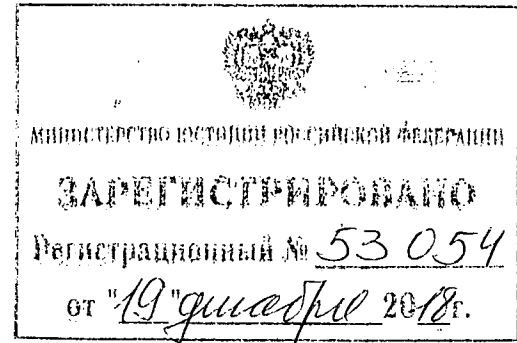 МИНИСТЕРСТВО ЮСТИЦИИ РОССИЙСКОЙ ФЕДЕРАЦИИ
ЗАРЕГИСТРИРОВАНО
Регистрационный № 53054
от "19" декабря 2018г.